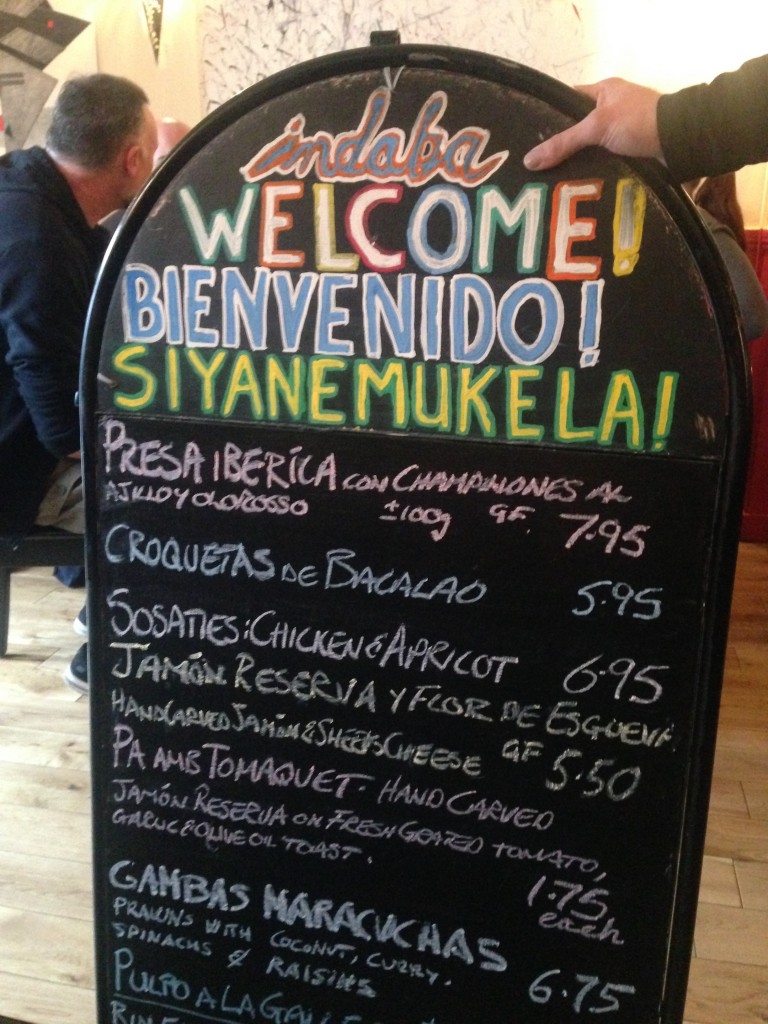 indaba
WELCOME!
BIENVENIDO!
SIYANEMUKELA!
PRESA IBERICA CON CHAMPINONES AL
AJILLO Y OLOROSSO ±100g GF. 7.95
CROQUETAS DE BACALAO 5.95
SOSATIES: CHICKEN & APRICOT 6.95
JAMÓN RESERVA Y FLOR DE ESGUEVA
HANDCARVED JAMÓN & SHEEPS CHEESE GF 5.50
PA AMB TOMAQUET. HAND CARVED
JAMÓN RESERVA ON FRESH GRATED TOMATO,
GARLIC & OLIVE OIL TOAST. 1.75
each
GAMBAS MARACUCHAS
PRAWNS WITH COCONUT, CURRY.
SPINACHS & RAISINS 6.75
PULPO A LA